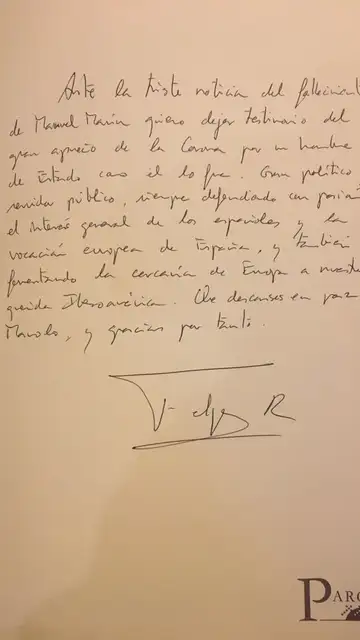 Ante la triste noticia del fallecimient
de Manuel Marín quiero dejar testimonio del
gran aprecio de la Corona por un hombre
de Estado como él lo fue. Gran político
servidor público, siempre defendiendo con pasión
el interés general de los españoles y la
vocación europea de España, y también
fomentando la cercanía de Europa a nuestra
querida Iberoamérica. Que descanses en paz
Manolo, y gracias por tanto.
Felipe R
PARQ